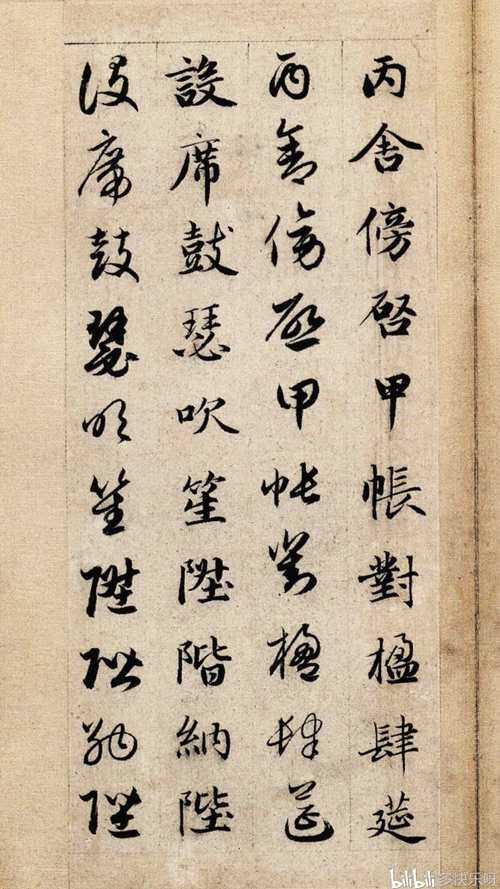 丙舍傍啓甲帳對楹肆莚
丙舍傍啓甲帳對楹肆莚
設席鼓瑟吹笙陞階納陛
設席鼓瑟吹笙陞階納陛
bilibili 多快乐呀